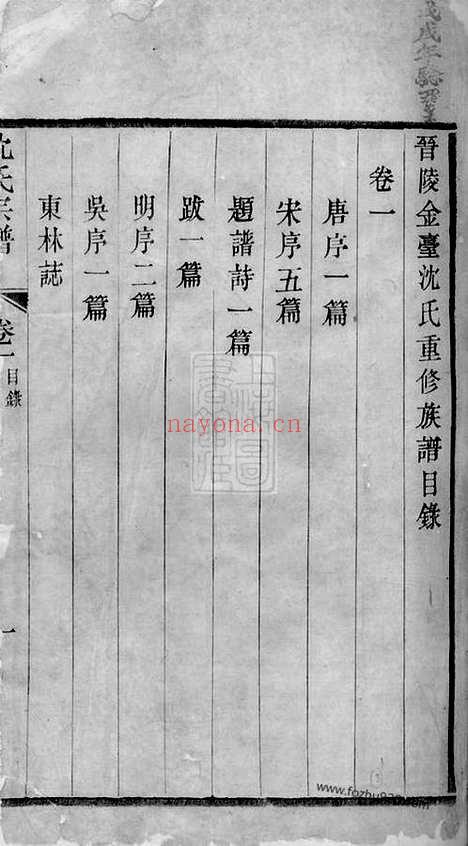 晉陵金臺沈氏重修族譜目錄
卷一
唐序一篇
宋序五篇
題譜詩一篇
跋一篇
明序二篇
吳序一篇
東林誌
沈氏宗譜
卷一
目錄
一
nayona.cn